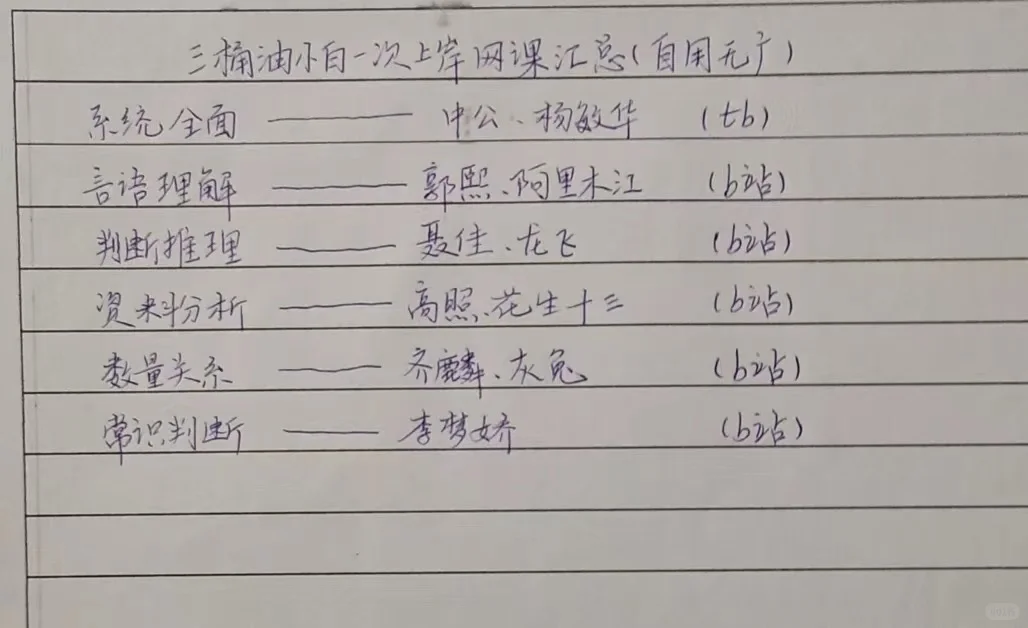 三桶油小白一次上岸网课汇总(自用无广)
系统全面 —— 中公、杨敏华 (tb)
言语理解 —— 郭熙、阿里木江 (b站)
判断推理 —— 聂佳、龙飞 (b站)
资料分析 —— 高照、花生十三 (b站)
数量关系 —— 齐麟、灰兔 (b站)
常识判断 —— 李梦娇 (b站)